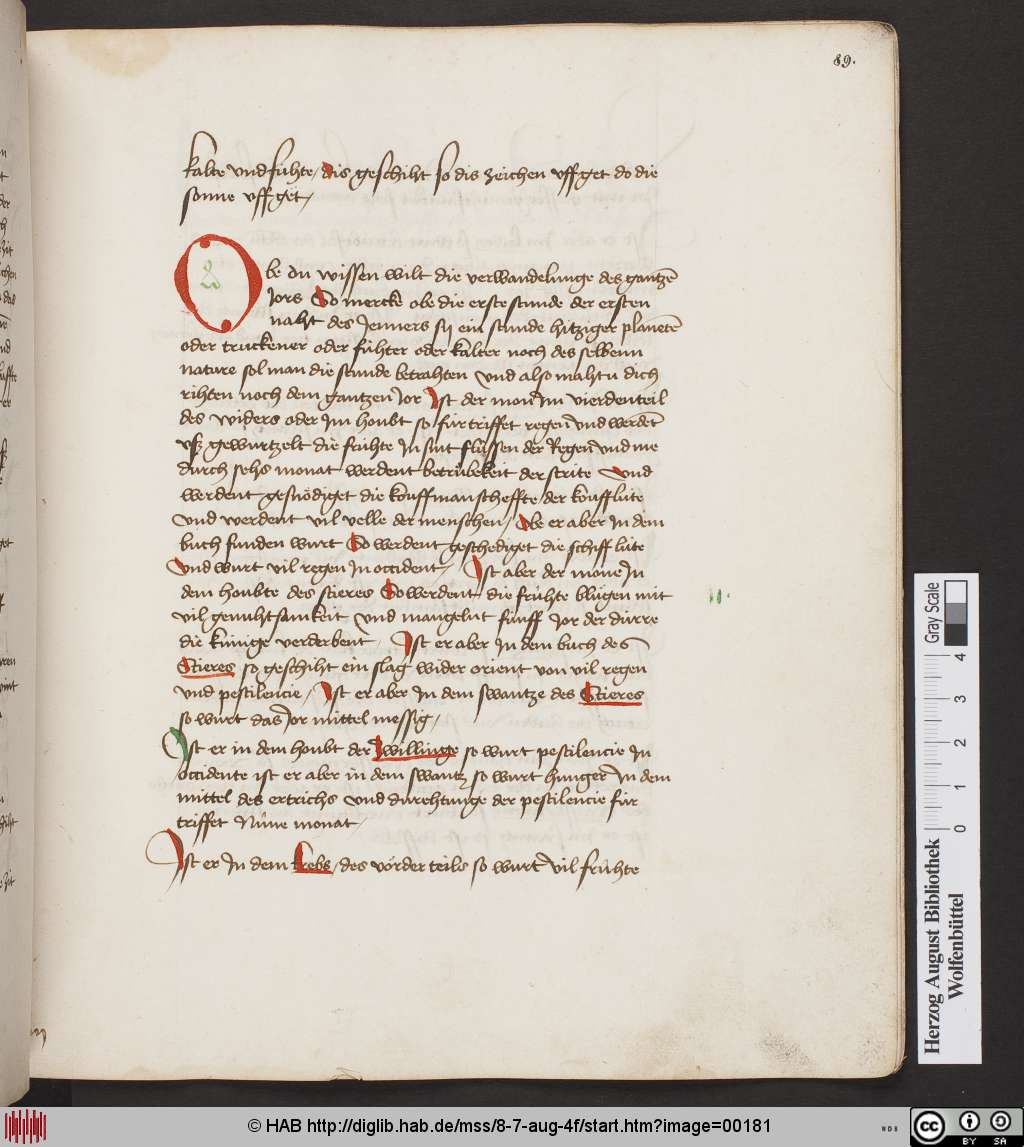 89.
kalte vnd fühte / dis geschiht so dis zeichen vff get do die
sonne vff get /
Obe du wissen wilt die verwandelunge des gantzē
Jors So mercke obe die erste stunde der ersten
naht des Jenners sy ein stunde hitziger planetē
oder truckener oder fühter oder kalter noch des selbenn
nature sol man die stunde betrahten vnd also mahtu dich
rihten noch dem gantzen Jor Ist der mon Im vierdenteil
des widers oder Im houbt so für triffet regen vnd werdēt
vsz gewurtzelt die frühte In sint flüssen der Regen vnd ine
durch sehs monat werdent betrübekeit der strite Vnd
werdent gesnödiget die kouffmanscheffte der kouffliite
vnd werdent vil velle der menschen / Obe er aber In dem
buch funden wurt So werdent geschediget die schiff lüte
Vnd wurt vil regen In occident / Ist aber der mone In
dem houbte des stieres So werdent die frühte blügen mit
vil genuhtsamkeit vnd mangelnt fünff Jor der dürre
die künige verderbent Ist er aber In dem buch des
Stieres so geschiht ein slag wider orient von vil regen
vnd pestilencie / Ist er aber In dem swantze des Stieres
so wurt das Jor mittel messig /
Ist er in dem houbt der Zwillinge so wurt pestilencie In
occidente ist er aber in dem swantz so wurt hunger In dem
mittel des ertrichs vnd durchtunge der pestilencie für
triffet Nüne monat /
Ist er In dem krebs / des vorder teils so wurt vil frühte
Gray Scale
4
3
2
1
0
Herzog August Bibliothek
Wolfenbüttel
© HAB http://diglib.hab.de/mss/8-7-aug-4f/start.htm?image=00181
WDB
cc
BY SA